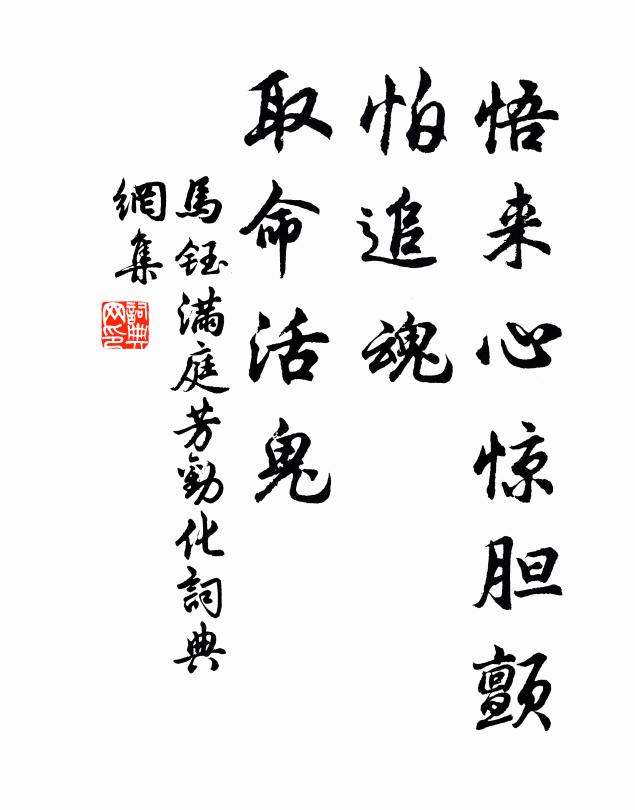 悟来心惊胆颤
怕追魂
取命活鬼
馬鈺滿庭芳勸化詞典
網集
詞典网印